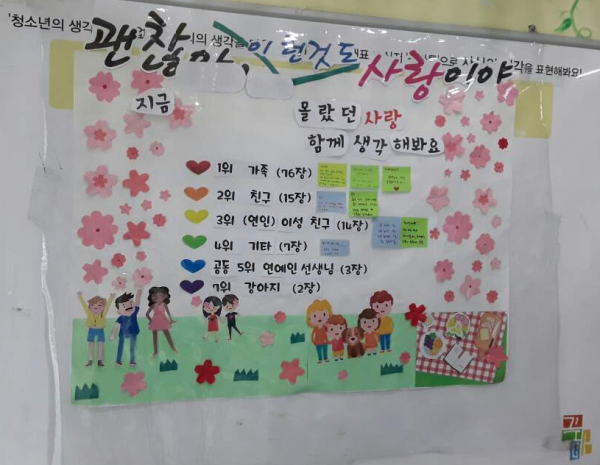 '청소년의 생각
표현해봐요!
괜찮아, 이런것도 사랑이야
지금 몰랐던 사랑
함께 생각해봐요
1위 가족 (76장)
2위 친구 (15장)
3위 (연인) 이성 친구 (14장)
4위 기타 (7장)
공동 5위 연예인 선생님 (3장)
7위 강아지 (2장)